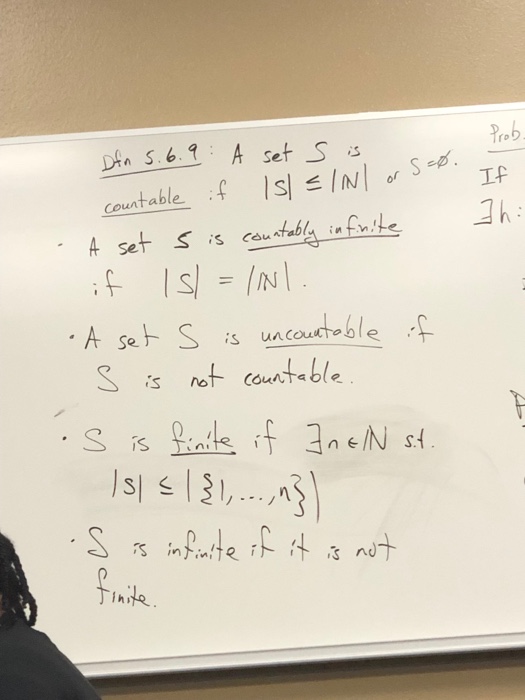 Dfn 5.6.9: A set S is
countable if |S| ≤ |ℕ| or S=∅.
· A set S is countably infinite
if |S| = |ℕ|.
· A set S is uncountable if
S is not countable.
· S is finite if ∃n∈ℕ s.t.
|S| ≤ |{1,...,n}|
· S is infinite if it is not
finite.
Prob.
If
∃h: